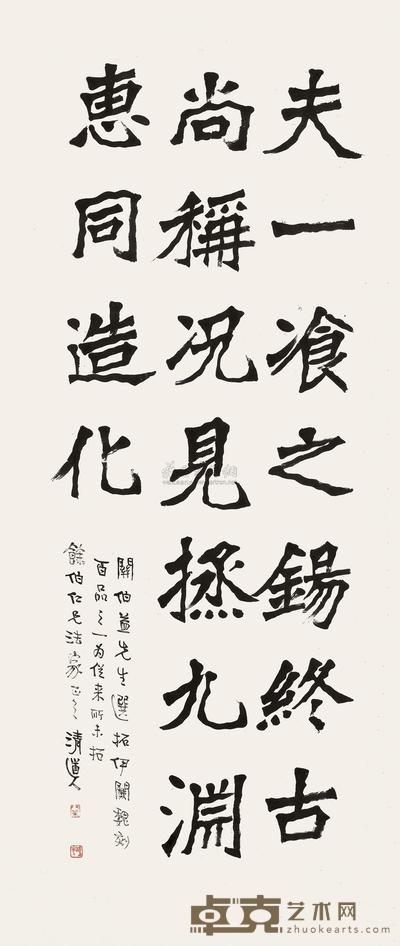 夫一飡之錫終古
尚稱况見拯九淵
惠同造化
關伯益先生選拓伊闕魏刻
百品之一为從来所未拓
餘伯仁兄法家正之 清道人
卓克艺术网
zhuokearts.com